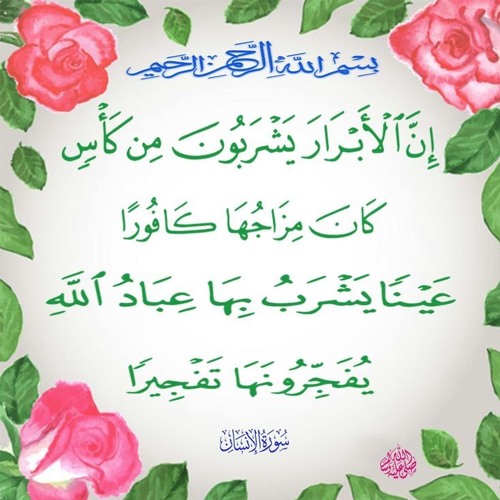 بِسْمِ اللَّهِ الرَّحْمَنِ الرَّحِيمِ
إِنَّ ٱلْأَبْرَارَ يَشْرَبُونَ مِن كَأْسٍ
كَانَ مِزَاجُهَا كَافُورًا
عَيْنًا يَشْرَبُ بِهَا عِبَادُ ٱللَّهِ
يُفَجِّرُونَهَا تَفْجِيرًا
سُورَةُ الْإِنْسَانِ